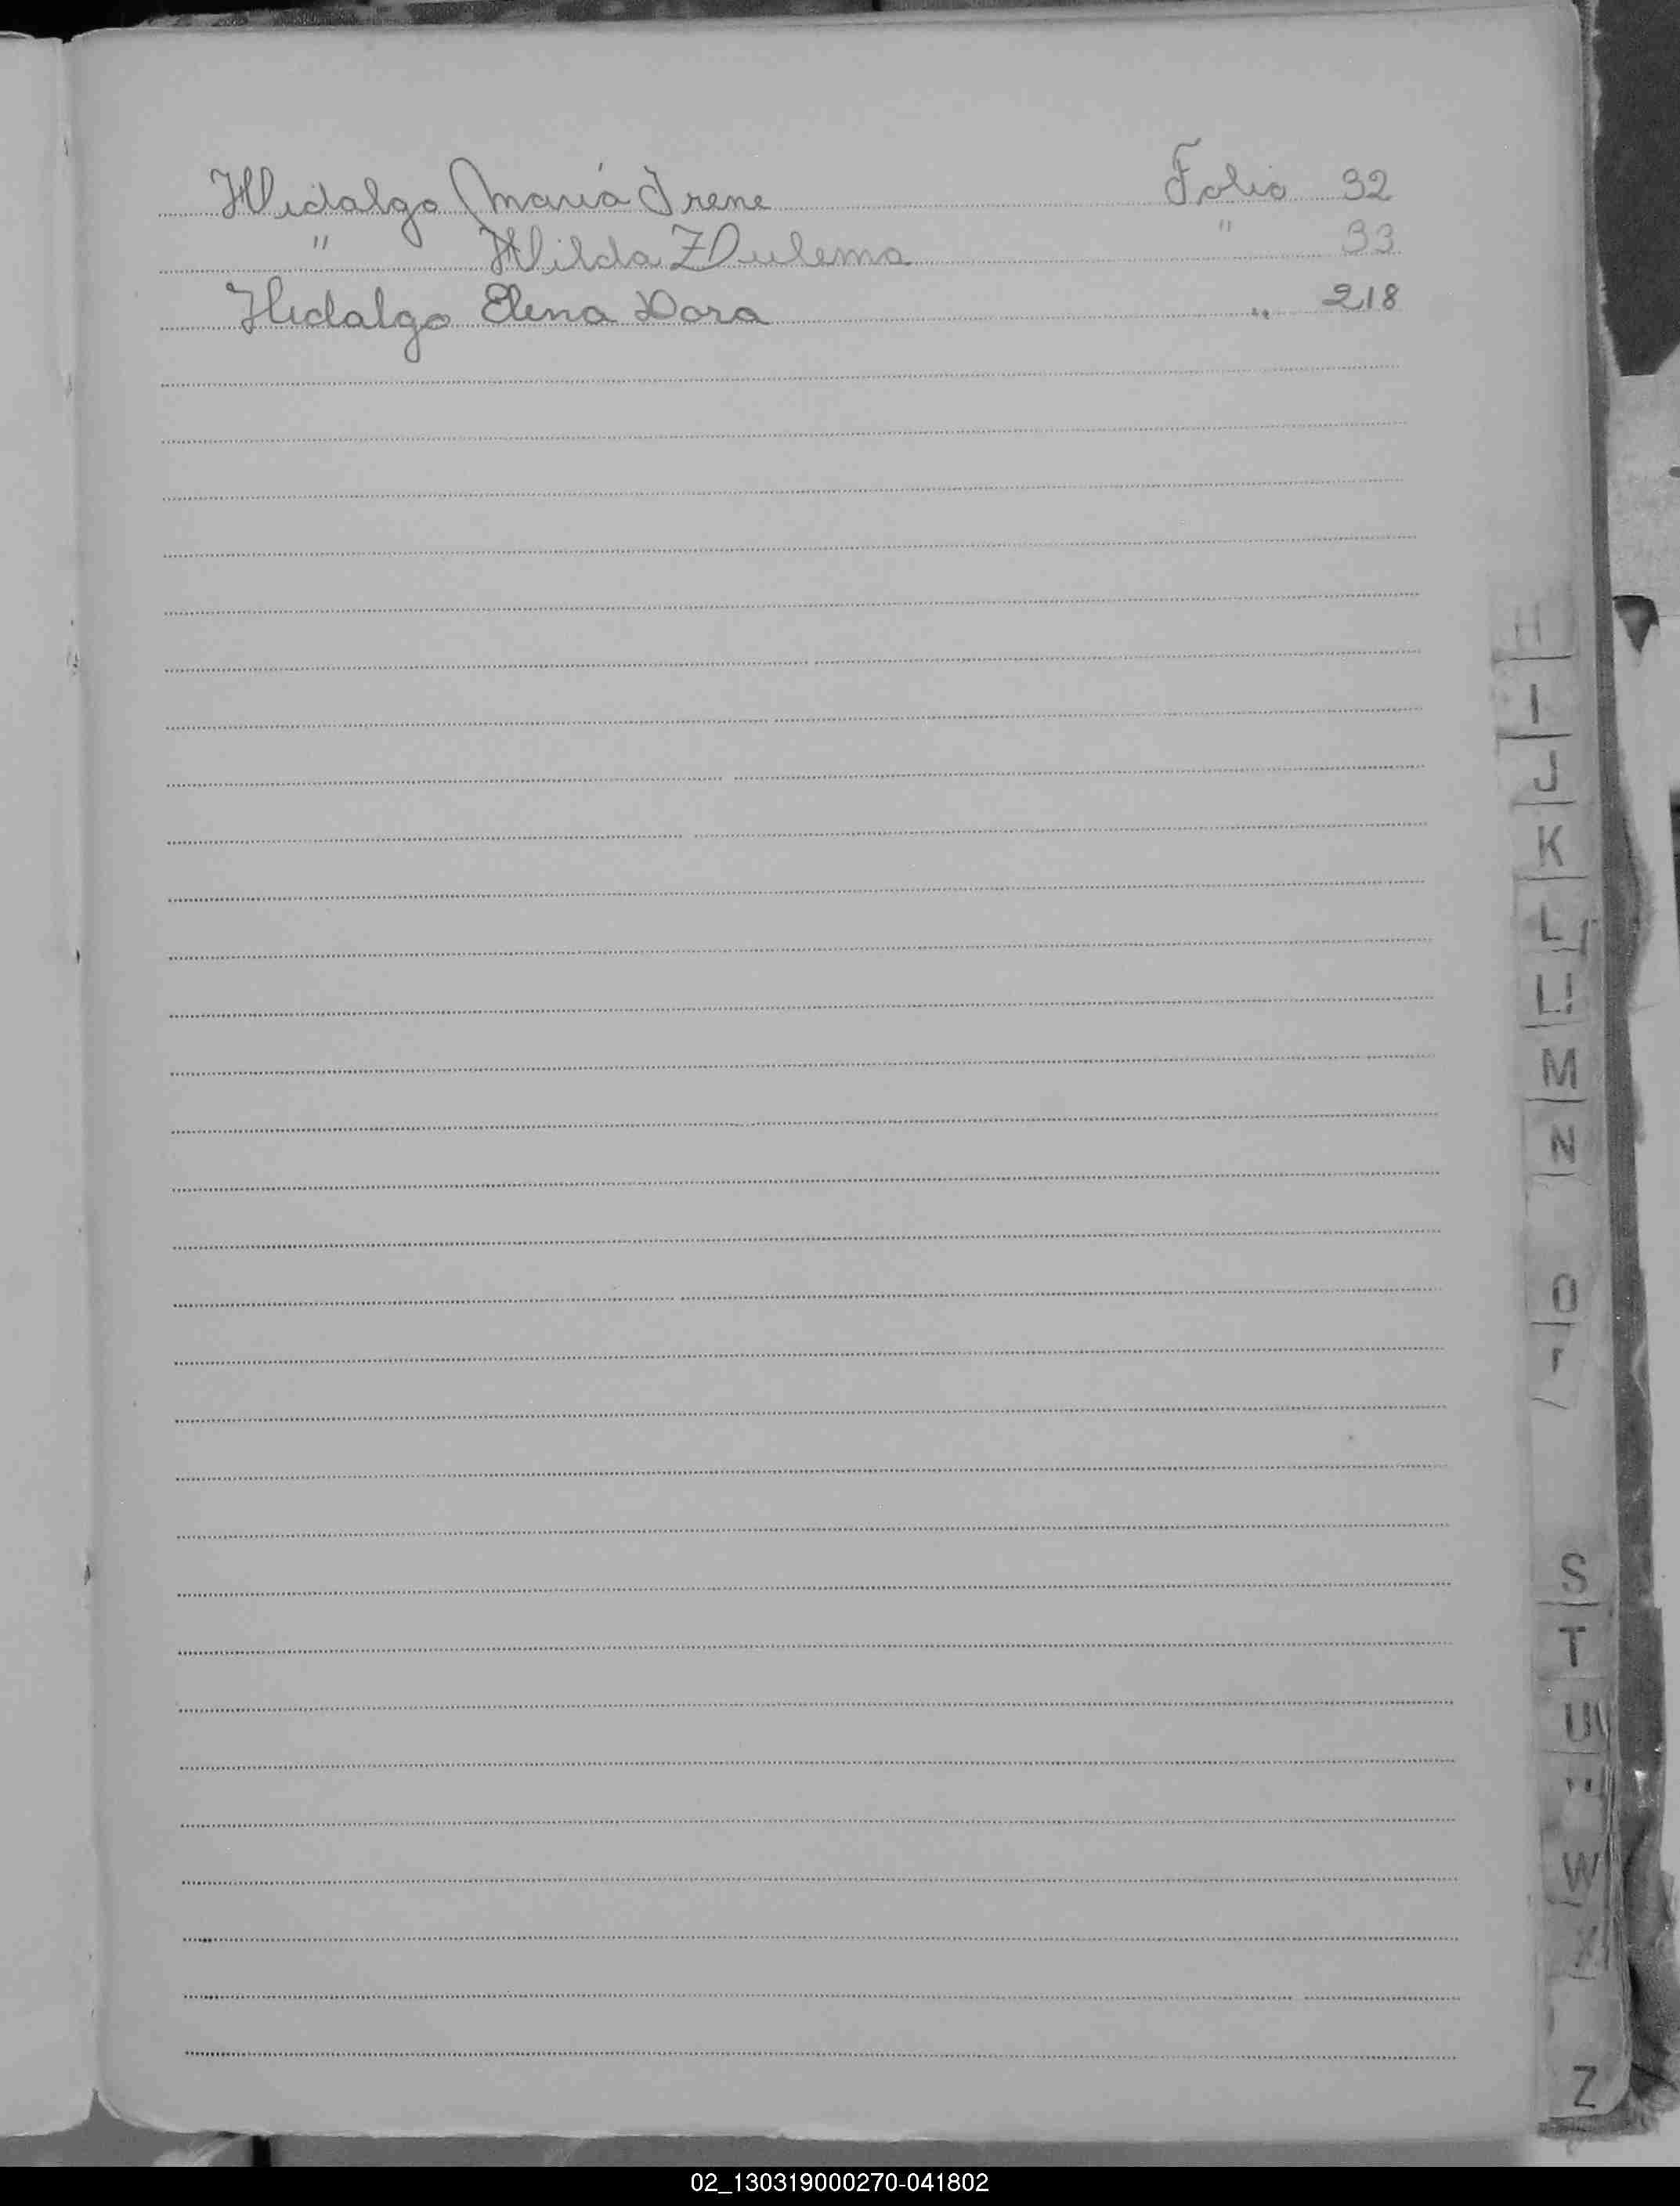 Hidalgo María Irene Folio 32
" Hilda Zulema " 33
Hidalgo Elena Dora " 218
H
I
J
K
L
LL
M
N
O
S
T
U
W
X
Z
02_130319000270-041802